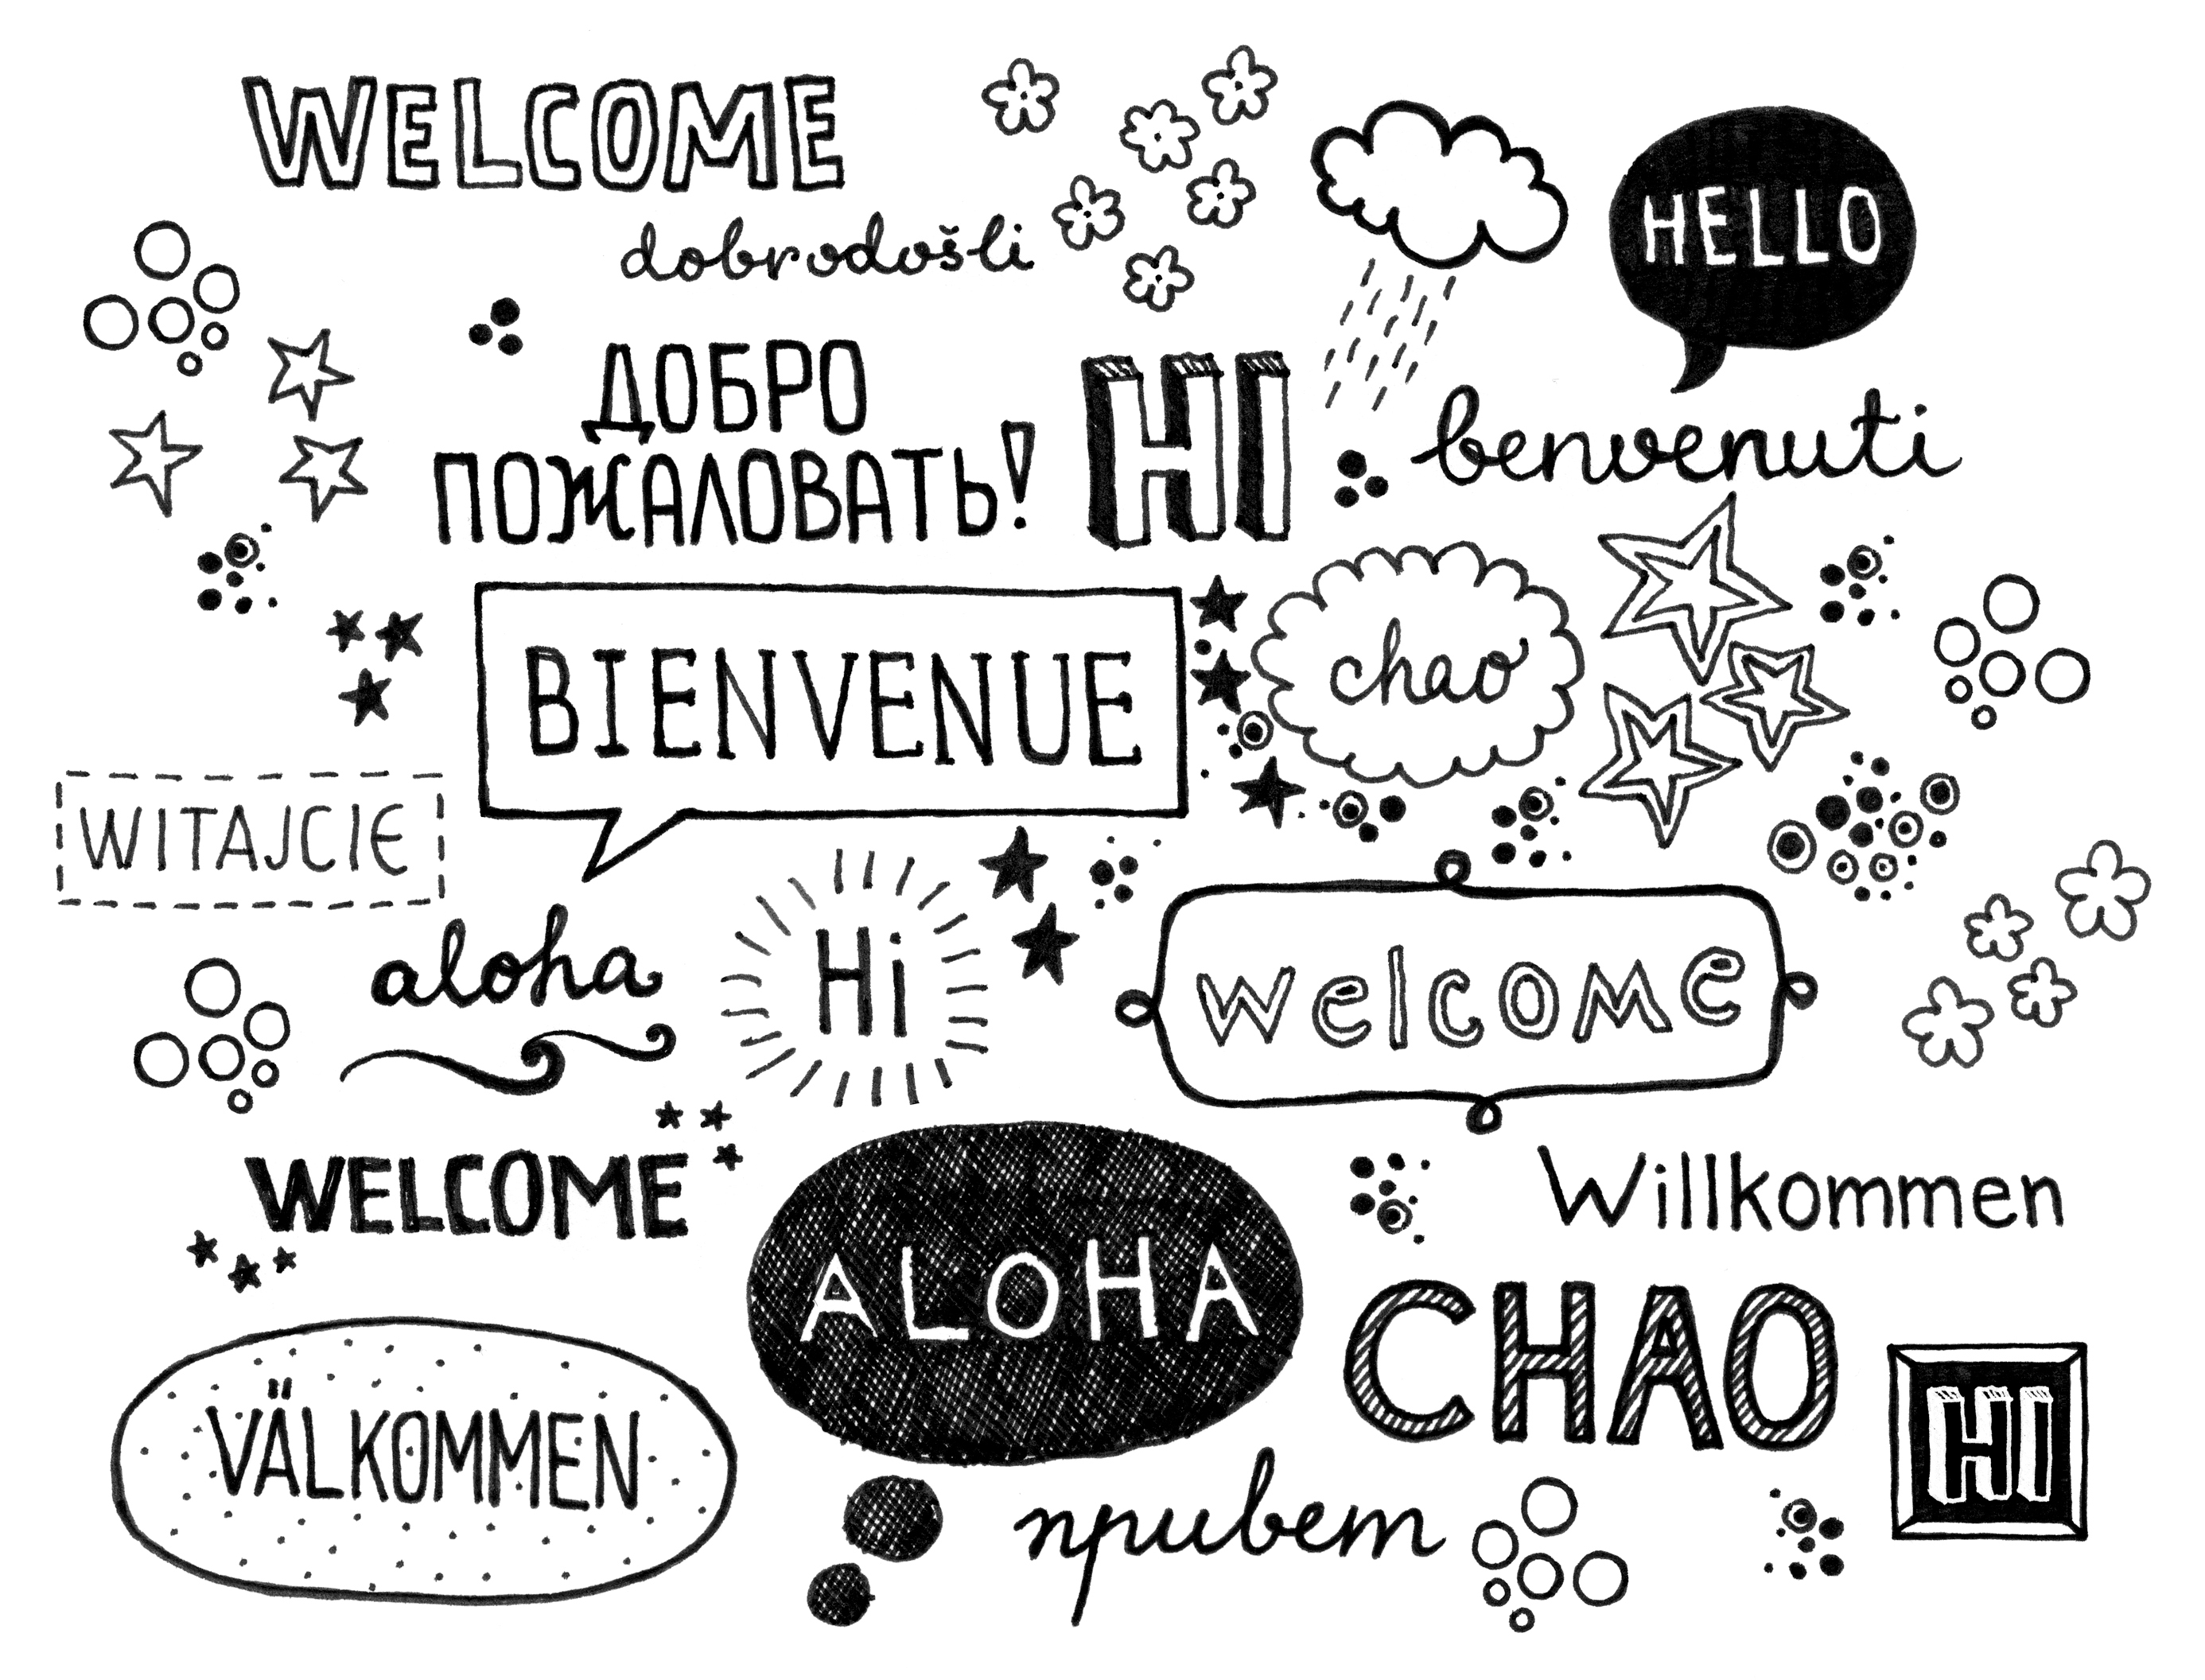 WELCOME
HELLO
dobrodošli
ДОБРО
ПОЖАЛОВАТЬ!
HI
benvenuti
BIENVENUE
chao
WITAJCIE
aloha
Hi
welcome
WELCOME
Willkommen
ALOHA
CHAO
HI
VÄLKOMMEN
привет